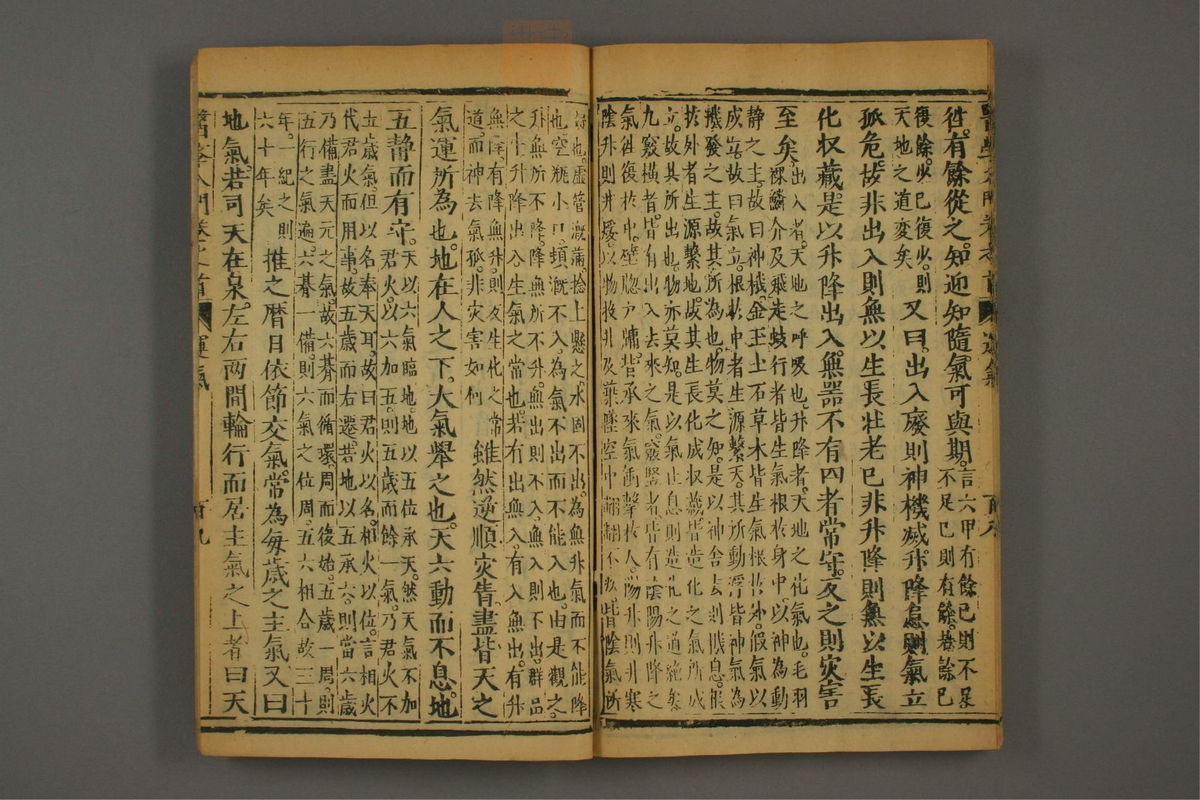 醫學入門卷之首 運氣
徃有餘從之知迎知隨氣可與期
言六甲有餘已則不足
不足已則有餘若餘已
復餘少已復少則
天地之道変矣
又曰出入廢則神機滅升降息則氣立
孤危故非出入則無以生長壯老已非升降則無以生長
化収藏是以升降出入無噐不有四者常守反之則灾害
至矣
出入者天地之呼吸也升降者天地之化氣也毛羽
裸鱗介及飛走蚑行者皆生氣根於身中以神為動
静之主故曰神機金玉土石草木皆生氣根於外假氣以
成立故曰氣立根於中者生源繫天其所動浮皆神氣為
機發之主故其所為也物莫之知是以神舍去則機息根
於外者生源繫地故其生長化成収藏皆造化之氣所成
立故其所出也物亦莫知是以氣止息則造化之道絶矣
九竅橫者皆有出入去來之氣竅竪者皆有陰陽升降之
氣徃復於中壁牕戶牖皆承來氣衝擊於人陽升則井寒
陰升則井煖以物投井及葉墜空中翩翩不疾皆陰氣所
碍也虛管溉滿捻上懸之水固不出為無升氣而不能降
也空瓶小口頓溉不入為氣不出而不能入也由是觀之
升無所不降降無所不升無出則不入無入則不出群品
之中升降出入生氣之常也若有出無入有入無出有升
無降有降無升則反生化之常
道而神去氣孤非灾害如何
雖然逆順灾眚盡皆天之
氣運所為也地在人之下大氣舉之也天六動而不息地
五静而有守
天以六氣臨地地以五位承天然天氣不加
君火以六加五則五歲而餘一氣乃君火不
立歲氣但以名奉天耳故曰君火以名相火以位言相火
代君火而用事故五歲而右遷若地以五承六則當六歲
乃備盡天元之氣故六朞而循環周而後始五歲一周則
五行之氣遍六朞一備則六氣之位周五六相合故三十
年一紀之則
六十年矣
推之曆日依節交氣常為每歲之主氣又曰
地氣若司天在泉左右兩間輪行而居主氣之上者曰天
醫學入門卷之首 運氣